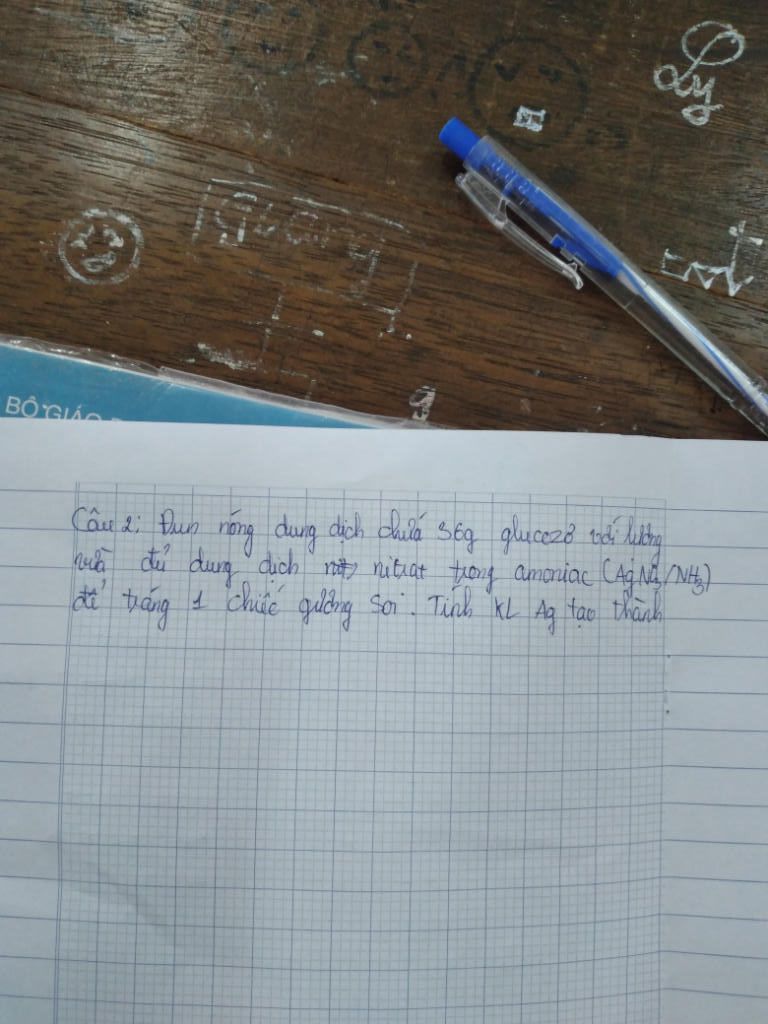 Ly
Quang
BỘ GIÁO
Câu 2: Đun nóng dung dịch chứa 36g glucozơ với lượng
vừa đủ dung dịch nitrat trong amoniac (AgNO3/NH3)
để tráng 1 chiếc gương soi. Tính KL Ag tạo thành